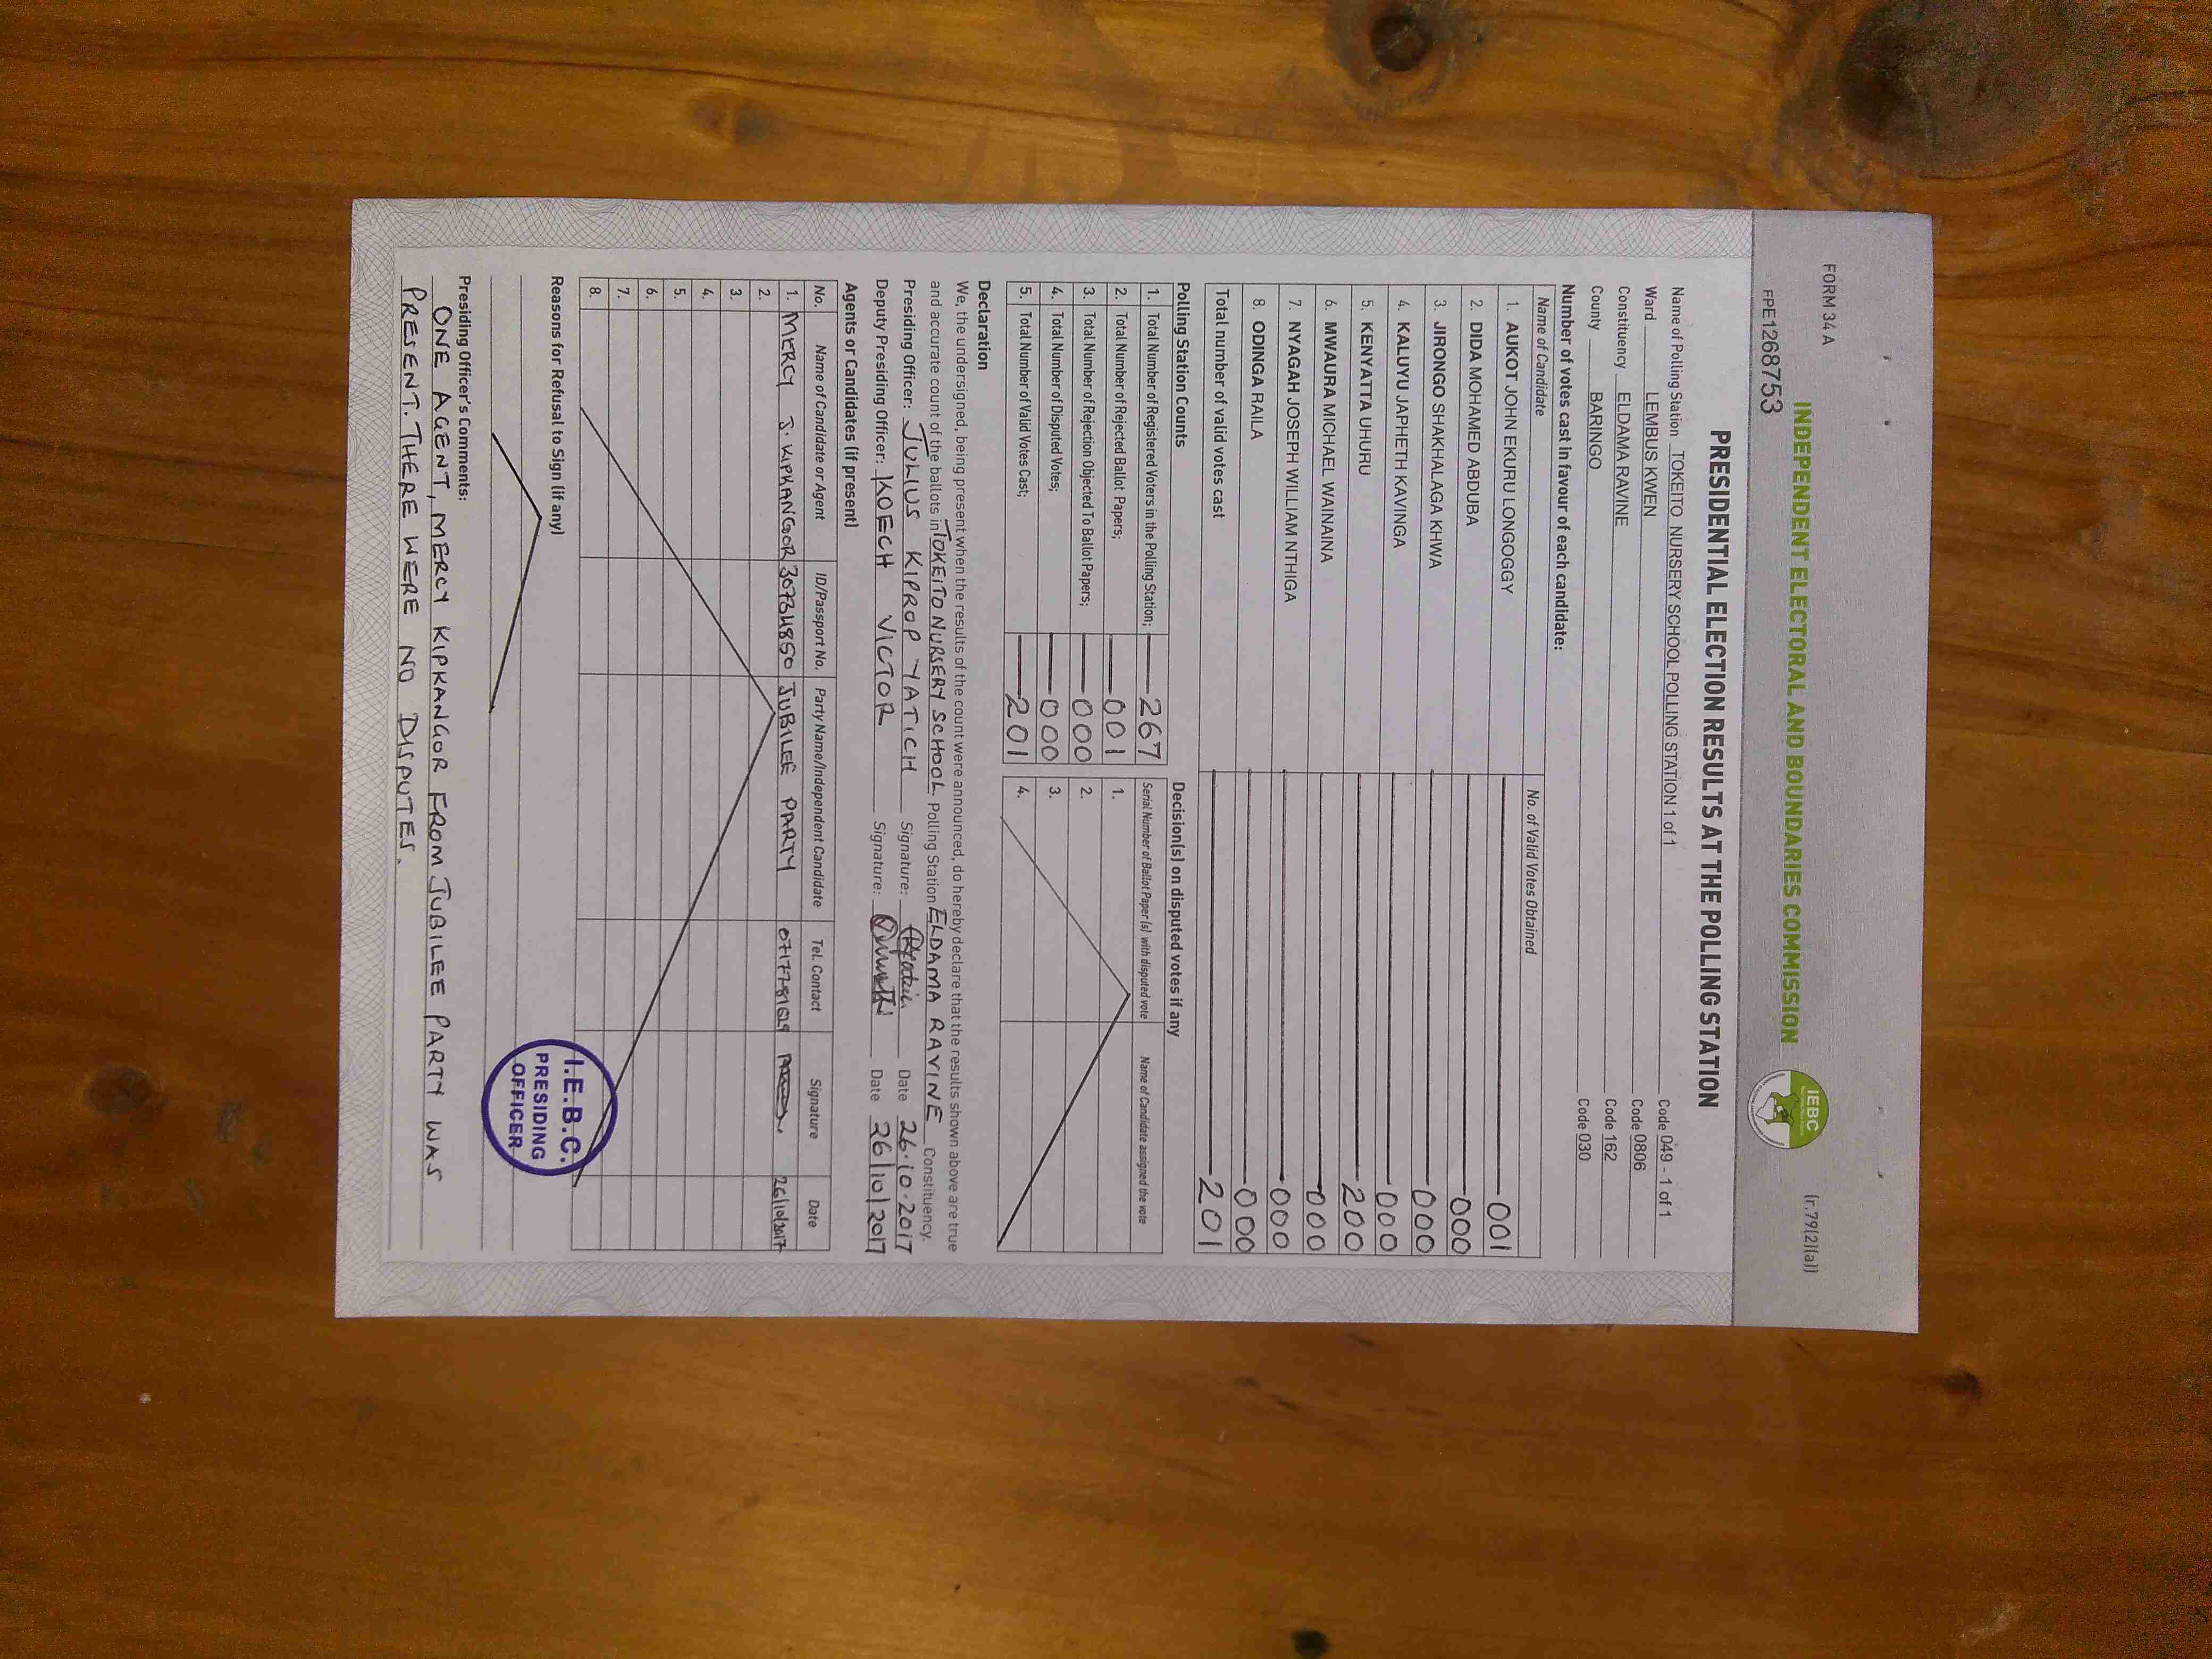 FORM 34A
(r.79(2)(a))
INDEPENDENT ELECTORAL AND BOUNDARIES COMMISSION
IEBC
FPE1268753
PRESIDENTIAL ELECTION RESULTS AT THE POLLING STATION
Name of Polling Station TOKEITO NURSERY SCHOOL POLLING STATION 1 of 1 Code 049 - 1 of 1
Ward LEMBUS KWEN Code 0806
Constituency ELDAMA RAVINE Code 162
County BARINGO Code 030
Number of votes cast in favour of each candidate:
Name of Candidate No. of Valid Votes Obtained
1. AUKOT JOHN EKURU LONGOGGY 001
2. DIDA MOHAMED ABDUBA 000
3. JIRONGO SHAKHALAGA KHWA 000
4. KALUYU JAPHETH KAVINGA 000
5. KENYATTA UHURU 200
6. MWAURA MICHAEL WAINAINA 000
7. NYAGAH JOSEPH WILLIAM NTHIGA 000
8. ODINGA RAILA 000
Total number of valid votes cast 201
Polling Station Counts
1. Total Number of Registered Voters in the Polling Station; 267
2. Total Number of Rejected Ballot Papers; 001
3. Total Number of Rejection Objected To Ballot Papers; 000
4. Total Number of Disputed Votes; 000
5. Total Number of Valid Votes Cast; 201
Decision(s) on disputed votes if any
Serial Number of Ballot Paper (s) with disputed vote Name of Candidate assigned the vote
1.
2.
3.
4.
Declaration
We, the undersigned, being present when the results of the count were announced, do hereby declare that the results shown above are true
and accurate count of the ballots in TOKEITO NURSERY SCHOOL Polling Station ELDAMA RAVINE Constituency.
Presiding Officer: JULIUS KIPROP YATICH Signature: Date 26.10.2017
Deputy Presiding Officer: KOECH VICTOR Signature: Date 26/10/2017
Agents or Candidates (if present)
No. Name of Candidate or Agent ID/Passport No. Party Name/Independent Candidate Tel. Contact Signature Date
1. MERCY J. KIPKANGOR 30734850 JUBILEE PARTY 26/10/2017
2.
3.
4.
5.
6.
7.
8.
Reasons for Refusal to Sign (if any)
I.E.B.C.
PRESIDING
OFFICER
Presiding Officer's Comments:
ONE AGENT, MERCY KIPKANGOR FROM JUBILEE PARTY WAS
PRESENT. THERE WERE NO DISPUTES.